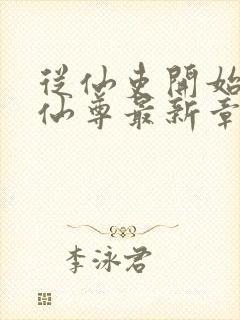 從仙吏開始
仙尊最新章
李泳君